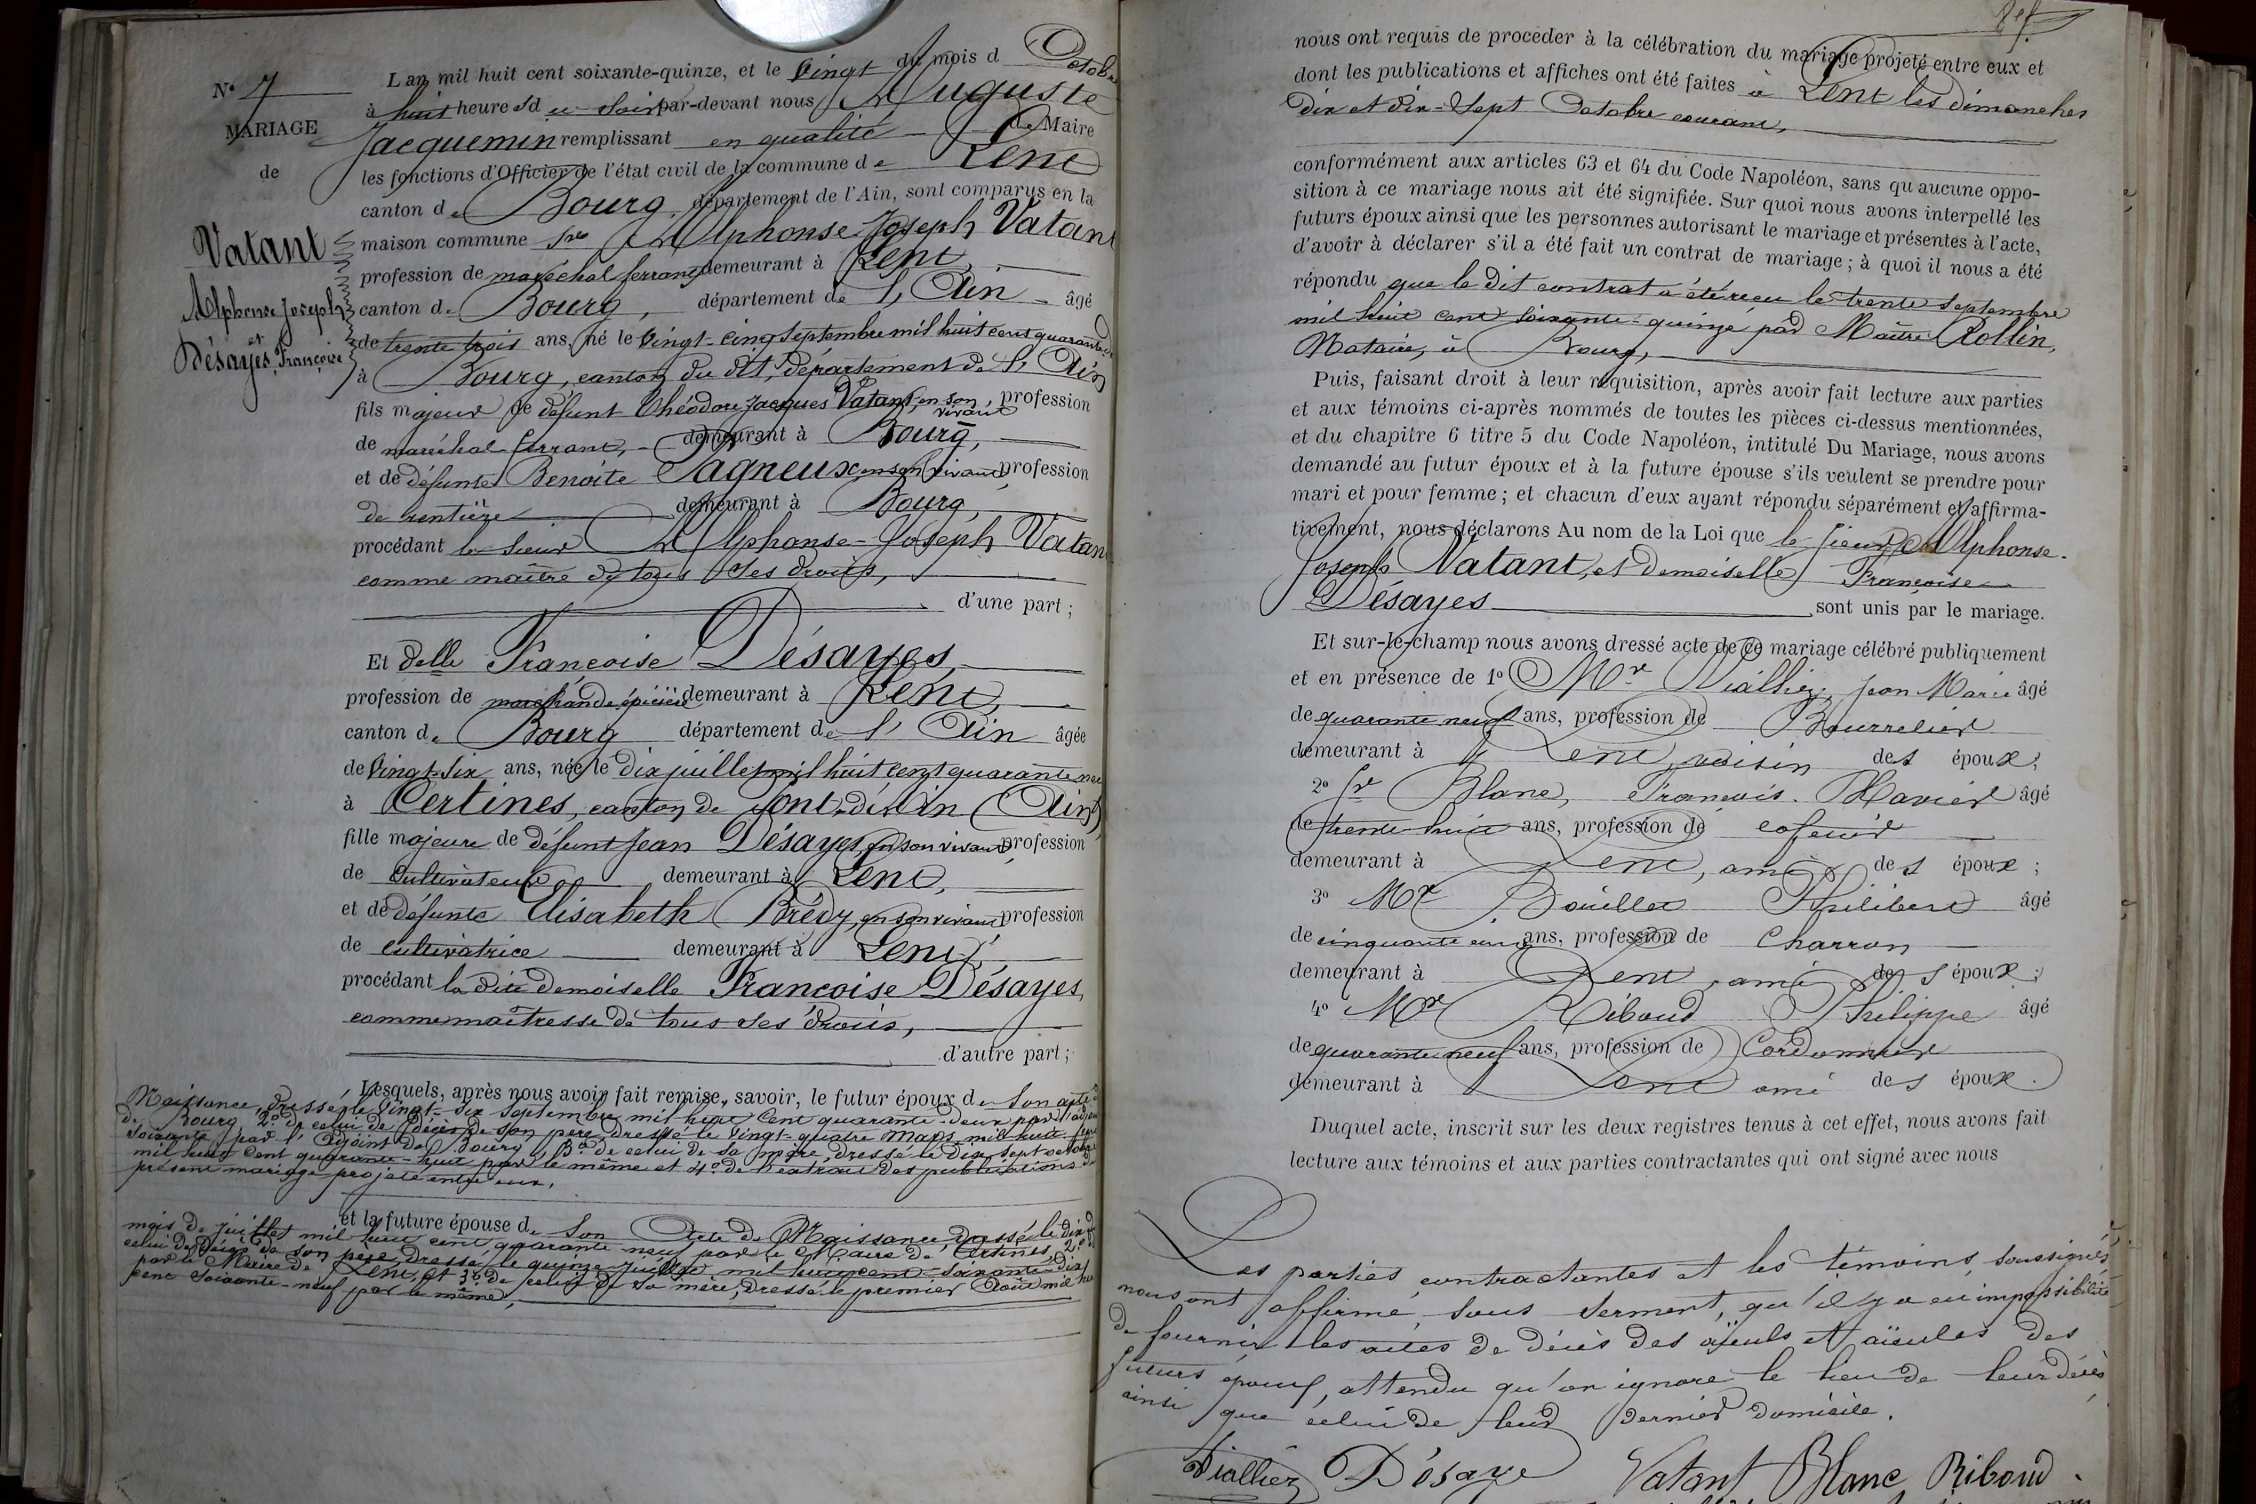 N° 7
MARIAGE
de
Vatant
Alphonse Joseph
et
Désayes, Françoise
L'an mil huit cent soixante-quinze, et le vingt du mois d Octobre
à huit heures du soir par-devant nous Auguste
Jacquemin remplissant en qualité de Maire
les fonctions d'Officier de l'état civil de la commune de Lent
canton de Bourg, département de l'Ain, sont comparus en la
maison commune Alphonse Joseph Vatant
profession de maréchal ferrant demeurant à Lent,
canton de Bourg, département de l'Ain âgé
de trente trois ans, né le vingt-cinq septembre mil huit cent quarante
à Bourg, canton du dit, département de l'Ain
fils majeur de défunt Théodore Jacques Vatant, en son vivant, profession
de maréchal ferrant, demeurant à Bourg,
et de défunte Benoite Sagneux, en son vivant, profession
de rentière demeurant à Bourg,
procédant le sieur Alphonse-Joseph Vatant
comme maître de tous ses droits,
d'une part ;
Et delle Françoise Désayes,
profession de marchande épicière demeurant à Lent,
canton de Bourg département de l'Ain âgée
de vingt-six ans, née le dix juillet mil huit cent quarante neuf
à Certines, canton de Pont-d'Ain (Ain)
fille majeure de défunt Jean Désayes, en son vivant, profession
de cultivateur demeurant à Lent,
et de défunte Elisabeth Brédy, en son vivant, profession
de cultivatrice demeurant à Lent,
procédant la dite demoiselle Françoise Désayes,
comme maîtresse de tous ses droits,
d'autre part ;
Lesquels, après nous avoir fait remise, savoir, le futur époux de son acte de
Naissance, dressé le vingt-six septembre mil huit cent quarante-deux par l'adjoint
de Bourg, 2° de celui de décès de son père, dressé le vingt-quatre mars mil huit cent
soixante par l'adjoint de Bourg, 3° de celui de sa mère, dressé le dix sept octobre
mil huit cent quarante-huit par le même et 4° de l'extrait des publications du
présent mariage projeté entre eux,
et la future épouse de son Acte de Naissance dressé le dix du
mois de juillet mil huit cent quarante neuf par le Maire de Certines, 2° de
celui de décès de son père, dressé le quinze juillet mil huit cent soixante-dix
par le Maire de Lent, et 3° de celui de sa mère, dressé le premier Août mil huit
cent soixante-neuf par le même,
nous ont requis de procéder à la célébration du mariage projeté entre eux et
dont les publications et affiches ont été faites à Lent les dimanches
dix et dix-sept Octobre courant,
conformément aux articles 63 et 64 du Code Napoléon, sans qu'aucune oppo-
sition à ce mariage nous ait été signifiée. Sur quoi nous avons interpellé les
futurs époux ainsi que les personnes autorisant le mariage et présentes à l'acte,
d'avoir à déclarer s'il a été fait un contrat de mariage ; à quoi il nous a été
répondu que le dit contrat a été reçu le trente septembre
mil huit cent soixante-quinze par Maître Rollin,
Notaire, à Bourg,
Puis, faisant droit à leur réquisition, après avoir fait lecture aux parties
et aux témoins ci-après nommés de toutes les pièces ci-dessus mentionnées,
et du chapitre 6 titre 5 du Code Napoléon, intitulé Du Mariage, nous avons
demandé au futur époux et à la future épouse s'ils veulent se prendre pour
mari et pour femme ; et chacun d'eux ayant répondu séparément et affirma-
tivement, nous déclarons Au nom de la Loi que le sieur Alphonse-
Joseph Vatant, et demoiselle Françoise
Désayes sont unis par le mariage.
Et sur-le-champ nous avons dressé acte de ce mariage célébré publiquement
et en présence de 1° Mr Vialliez, Jean Marie âgé
de quarante neuf ans, profession de Bourrelier
demeurant à Lent, voisin des époux ;
2° Sr Blanc, François-Xavier âgé
de trente huit ans, profession de
demeurant à Lent, ami des époux ;
3° Mr Bouillet Philibert âgé
de cinquante cinq ans, profession de Charron
demeurant à Lent, ami des époux ;
4° Mr Riboud Philippe âgé
de quarante neuf ans, profession de Cordonnier
demeurant à Lent ami des époux.
Duquel acte, inscrit sur les deux registres tenus à cet effet, nous avons fait
lecture aux témoins et aux parties contractantes qui ont signé avec nous
Les parties contractantes et les témoins soussignés
nous ont affirmé, sous serment, qu'il y a eu impossibilité
de fournir les actes de décès des aïeuls et aïeules des
futurs époux, attendu qu'on ignore le lieu de leur décès
ainsi que celui de leur dernier domicile.
Vialliez Désaye Vatant Blanc Riboud